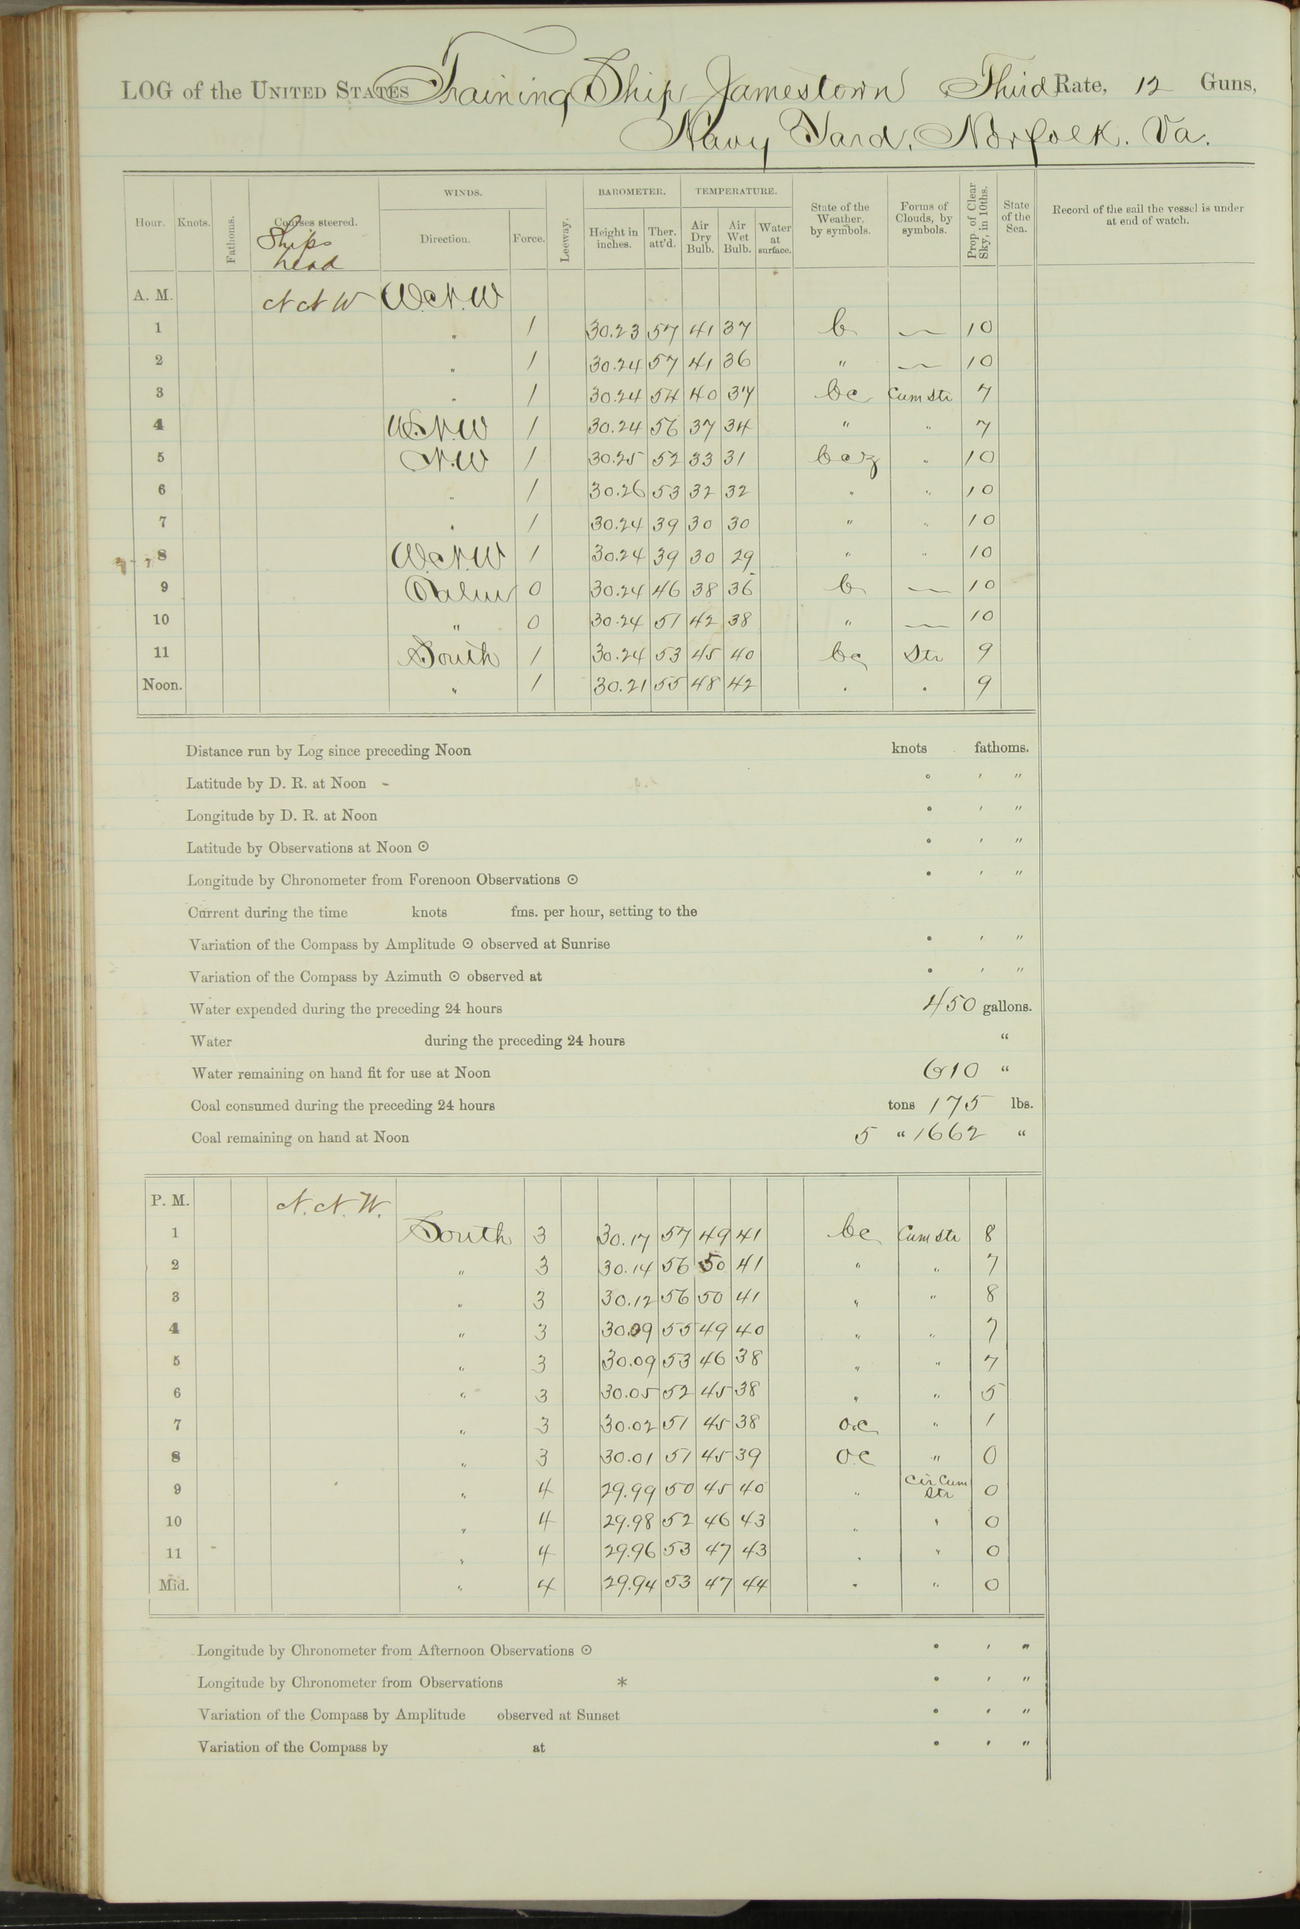 LOG of the UNITED STATES Training Ship Jamestown Third Rate, 12 Guns,
Navy Yard, Norfolk. Va.
Hour. Knots. Fathoms. Courses steered. WINDS. Direction. Force. Leeway. BAROMETER. Height in inches. Ther. att'd. TEMPERATURE. Air Dry Bulb. Air Wet Bulb. Water at surface. State of the Weather, by symbols. Forms of Clouds, by symbols. Prop. of Clear Sky, in 10ths. State of the Sea. Record of the sail the vessel is under at end of watch.
Ships head
A. M. N N W W.N.W
1 " 1 30.23 57 41 37 b — 10
2 " 1 30.24 57 41 36 " — 10
3 " 1 30.24 54 40 37 bc Cum Str 7
4 W.N.W 1 30.24 56 37 34 " " 7
5 N.W 1 30.25 52 33 31 bcz " 10
6 " 1 30.26 53 32 32 " " 10
7 " 1 30.24 39 30 30 " " 10
8 W.N.W 1 30.24 39 30 29 " " 10
9 Calm 0 30.24 46 38 36 b — 10
10 " 0 30.24 51 42 38 " — 10
11 South 1 30.24 53 45 40 bc Str 9
Noon. " 1 30.21 55 48 42 " " 9
Distance run by Log since preceding Noon knots fathoms.
Latitude by D. R. at Noon - ° ′ ″
Longitude by D. R. at Noon ° ′ ″
Latitude by Observations at Noon ⊙ ° ′ ″
Longitude by Chronometer from Forenoon Observations ⊙ ° ′ ″
Current during the time knots fms. per hour, setting to the
Variation of the Compass by Amplitude ⊙ observed at Sunrise ° ′ ″
Variation of the Compass by Azimuth ⊙ observed at ° ′ ″
Water expended during the preceding 24 hours 450 gallons.
Water during the preceding 24 hours "
Water remaining on hand fit for use at Noon 610 "
Coal consumed during the preceding 24 hours tons 175 lbs.
Coal remaining on hand at Noon 5 " 1662 "
P. M. N. N. W.
1 South 3 30.17 57 49 41 bc Cum Str 8
2 " 3 30.14 56 50 41 " " 7
3 " 3 30.12 56 50 41 " " 8
4 " 3 30.09 55 49 40 " " 7
5 " 3 30.09 53 46 38 " " 7
6 " 3 30.05 52 45 38 " " 5
7 " 3 30.02 51 45 38 oc " 1
8 " 3 30.01 51 45 39 oc " 0
9 " 4 29.99 50 45 40 " Cir Cum Str 0
10 " 4 29.98 52 46 43 " " 0
11 " 4 29.96 53 47 43 " " 0
Mid. " 4 29.94 53 47 44 " " 0
Longitude by Chronometer from Afternoon Observations ⊙ ° ′ ″
Longitude by Chronometer from Observations * ° ′ ″
Variation of the Compass by Amplitude observed at Sunset ° ′ ″
Variation of the Compass by at ° ′ ″